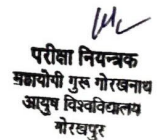 परीक्षा नियन्त्रक
महायोगी गुरू गोरखनाथ
आयुष विश्वविद्यालय
गोरखपुर